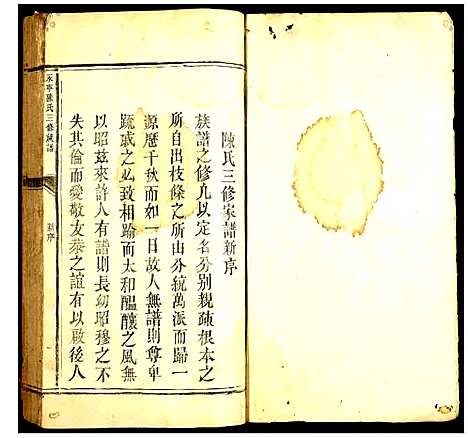 陳氏三修家譜新序
族譜之修凡以定名分別親疎根本之
所自出枝條之所由分統萬派而歸一
源歷千秋而如一日故人無譜則尊卑
疏戚之必致相踰而太和醞釀之風無
以昭茲來許人有譜則長幼昭穆之不
失其倫而愛敬友恭之誼有以啟後人
永寧陳氏三修族譜
新序